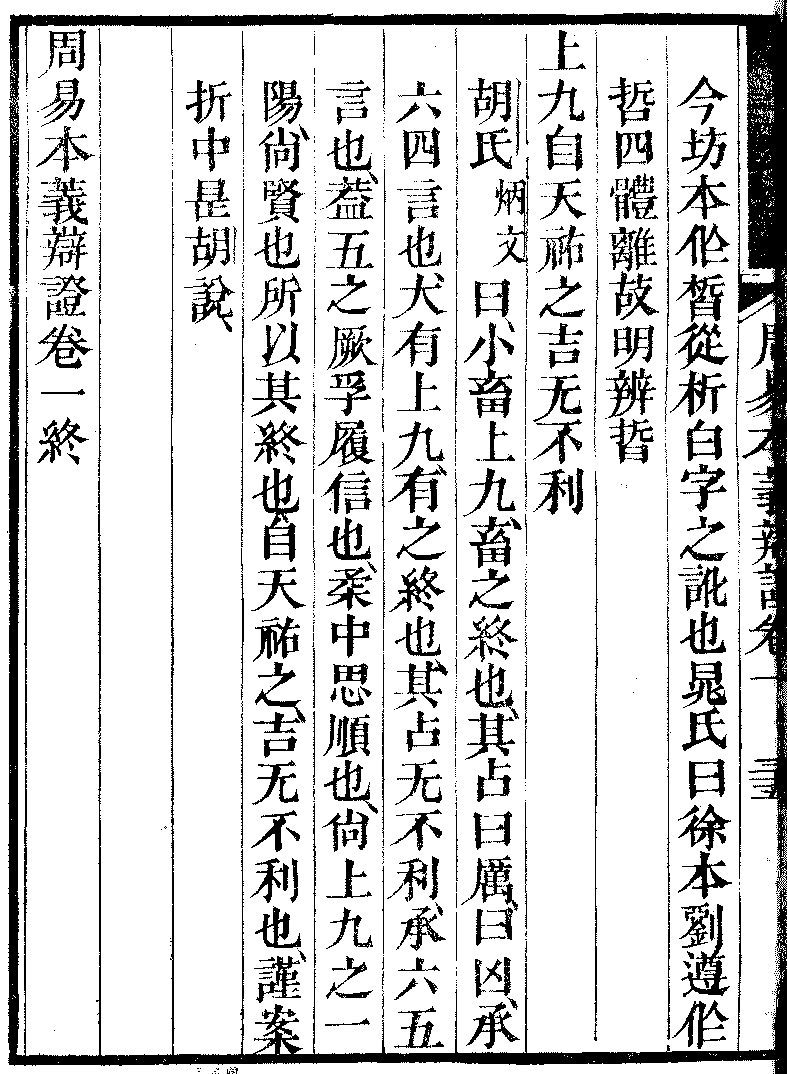 今坊本作晳從析白字之訛也晁氏曰徐本劉遵作
哲四體離故明辨晢
上九自天祐之吉无不利
胡氏炳文曰小畜上九畜之終也其占曰厲曰凶承
六四言也大有上九有之終也其占无不利承六五
言也葢五之厥孚履信也柔中思順也尙上九之一
陽尙賢也所以其終也自天祐之吉无不利也謹案
折中是胡說
周易本義辯證卷一終
周易本義辯證卷一